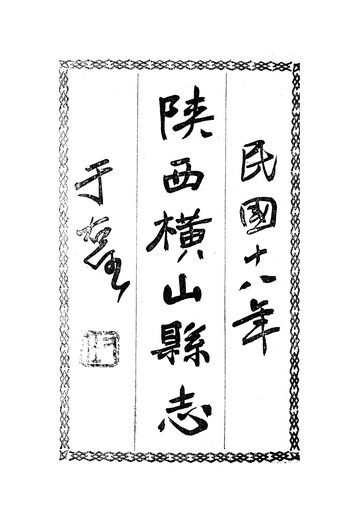 民國十八年
陝西橫山縣志
于